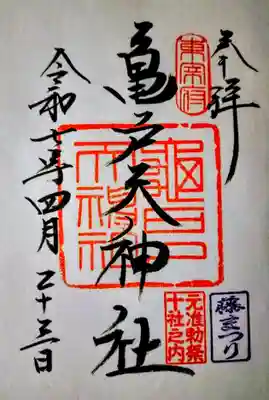 奉拝
東宰府
亀戸天神社
龜戸
天神社
元准勅祭
十社之内
藤まつり
令和七年四月二十三日